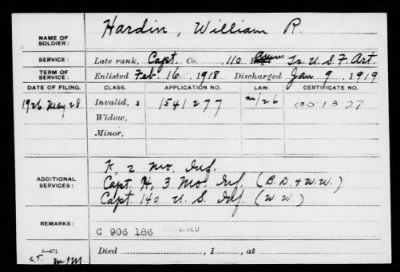 NAME OF SOLDIER: Hardin, William P.
SERVICE: Late rank, Capt. Co. 110 Tr. U.S.F. Art.
TERM OF SERVICE: Enlisted Feb. 16, 1918. Discharged Jan. 9, 1919
DATE OF FILING. CLASS. APPLICATION NO. LAW. CERTIFICATE NO.
1926 May 28 Invalid, 1541277
Widow,
Minor,
ADDITIONAL SERVICES: K, 2 Mo. Inf.
Capt. H, 3 Mo. Inf. (B.D. & W.W.)
Capt. 140 U.S. Inf. (W.W.)
REMARKS: C 906 186
Died , 1 , at